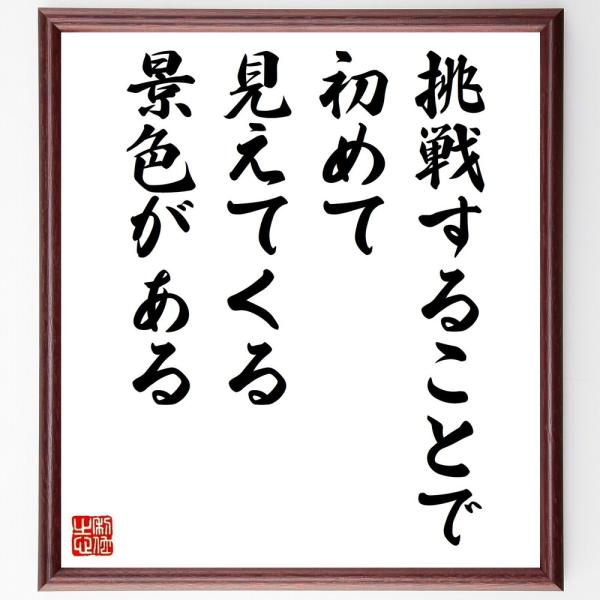 挑戦することで
初めて
見えてくる
景色がある